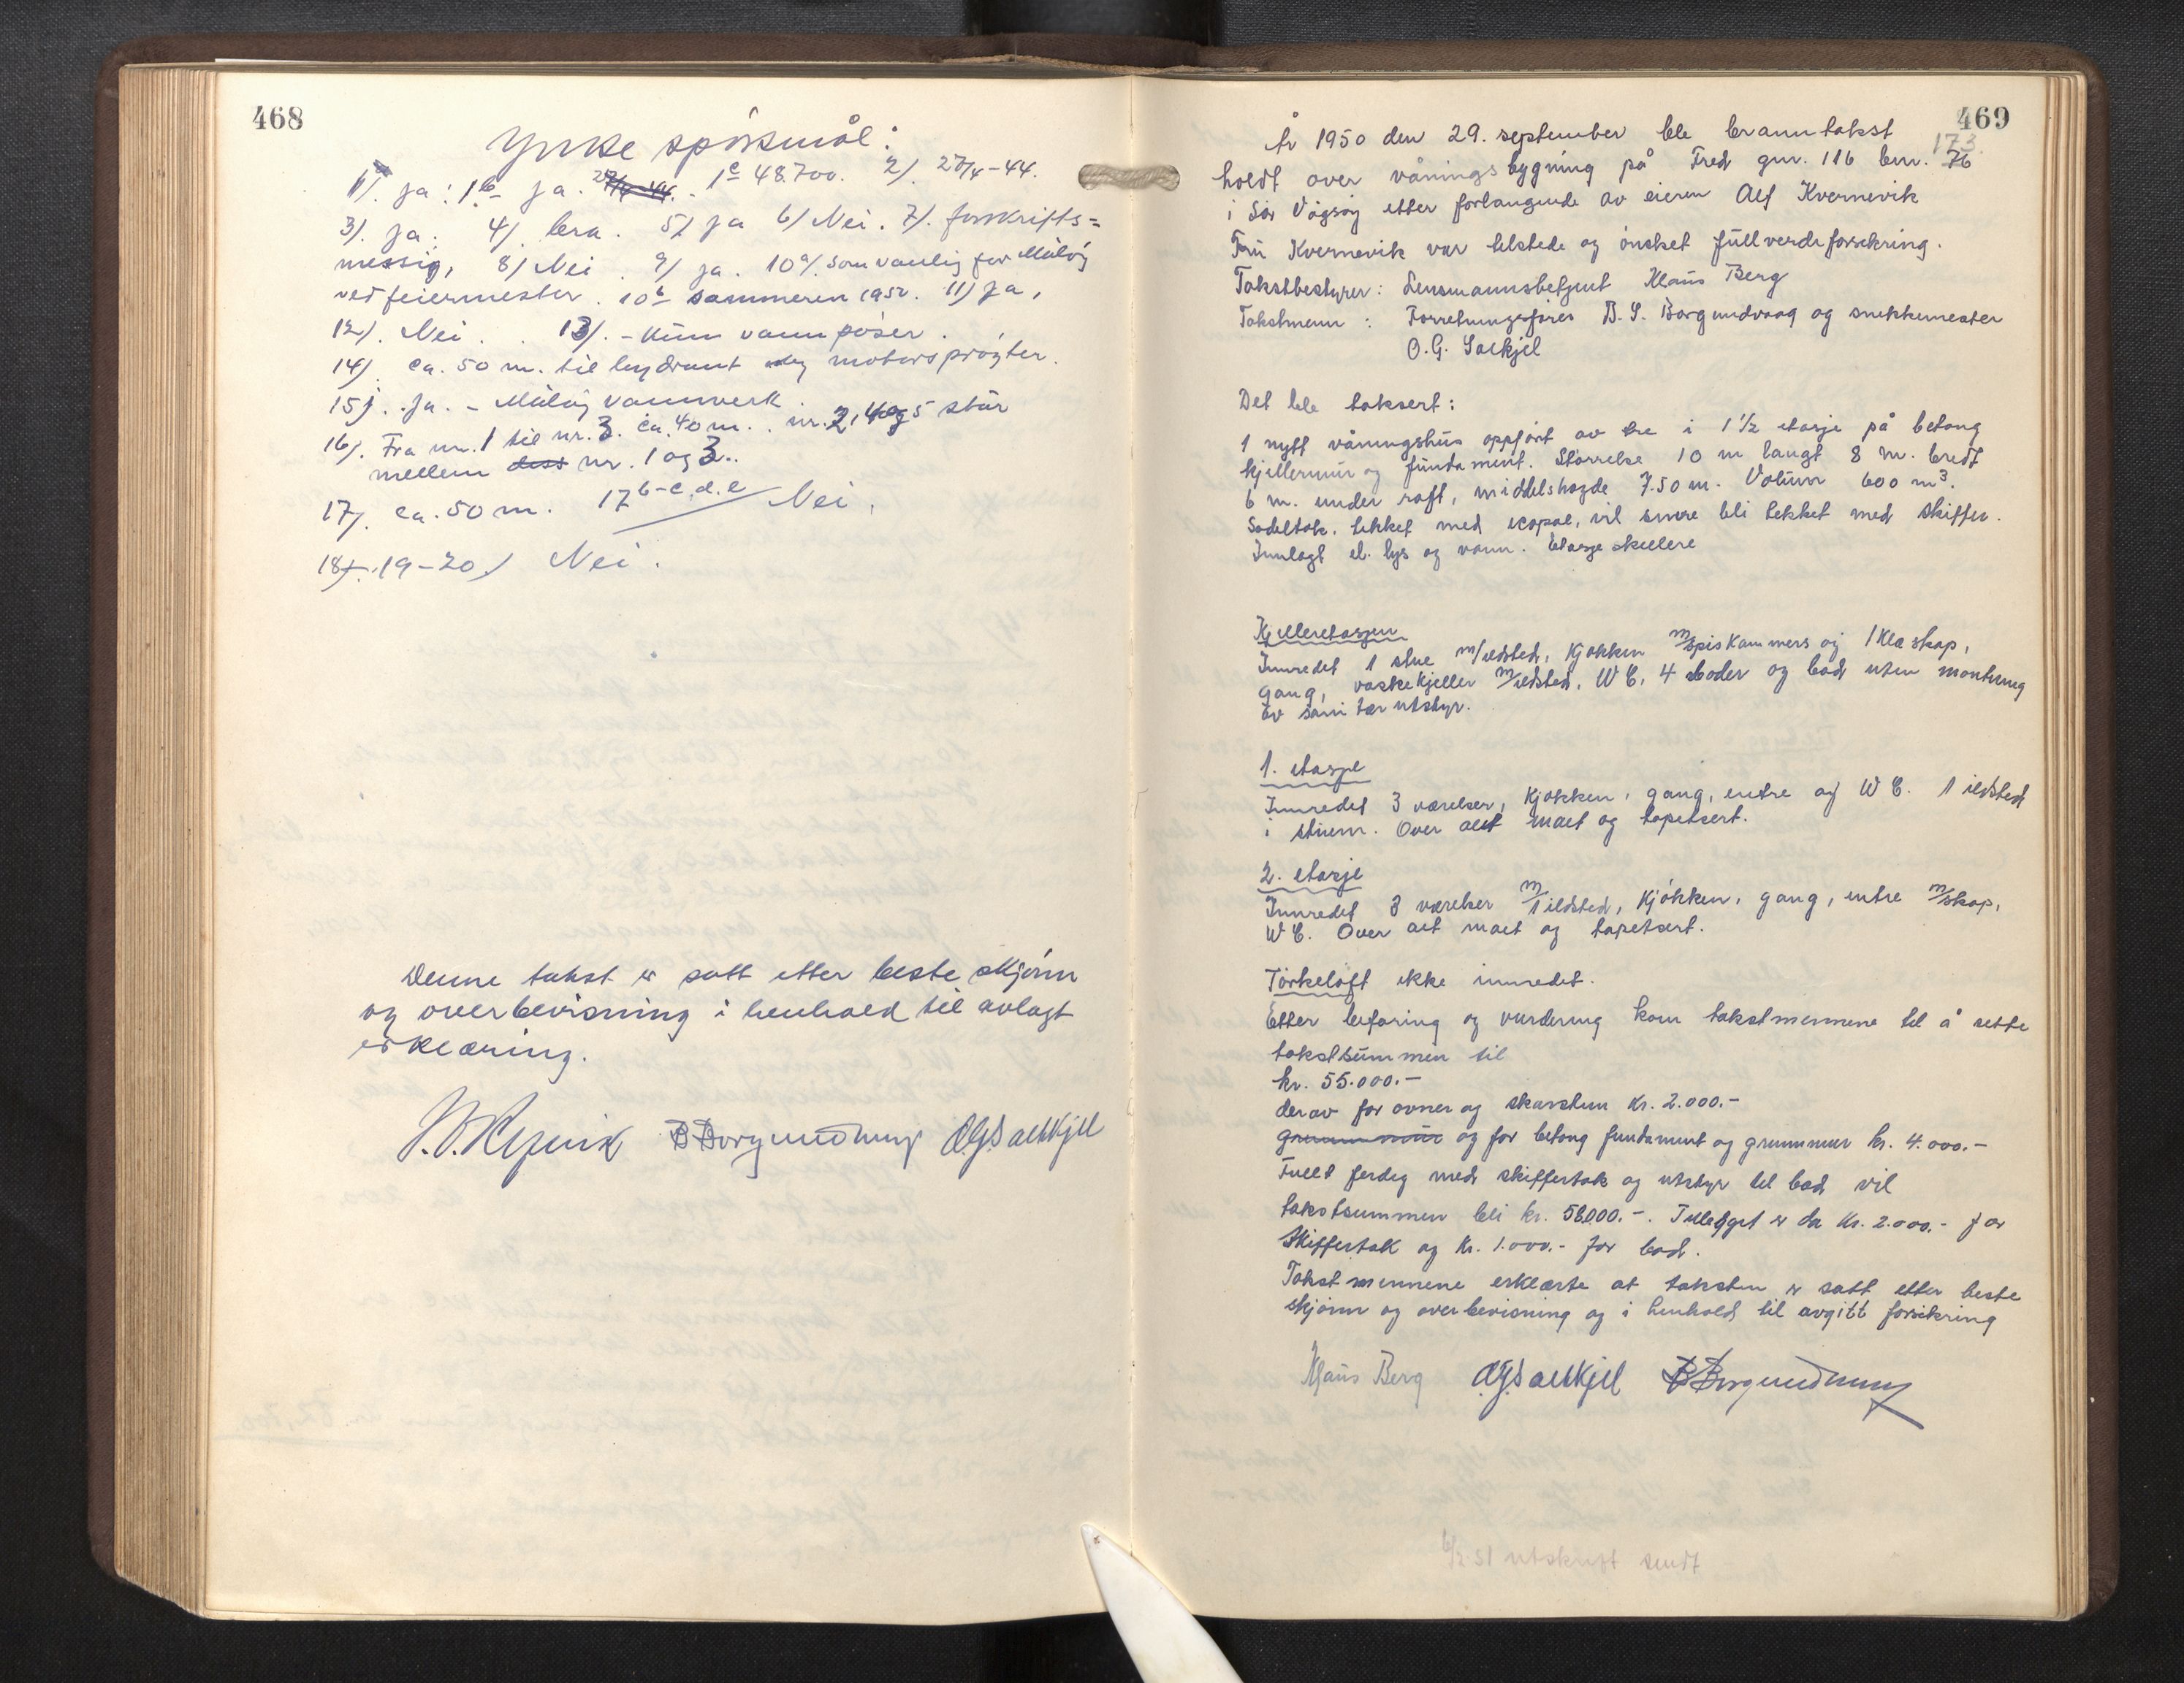 468
Ynke spörsmål:
1). ja: 1b ja. 27/4-44. 1c 48.700. 2). 27/4-44.
3). ja. 4). bra. 5) ja 6) Nei. 7). forskrifts=
messig, 8) Nei. 9) ja. 10a/. som vanlig for Måløy
ved feiermester. 10b sommeren 1950. 11) ja,
12). Nei. 13). - Kun vannposer.
14). ca. 50 m. til hydrant og motorsprøyter.
15). ja. - Måløy vannverk.
16). Fra nr. 1 til nr. 3. ca. 40 m. nr. 2, 4 og 5 står
mellem dess nr. 1 og 3..
17). ca. 50 m. 17 b-c.d.e Nei.
18). 19-20) Nei.
Denne takst er satt etter beste skjönn
og overbevisning i henhold til avlagt
erklæring.
B Borgundvaag O.G. Sælkjel
469
173.
År 1950 den 29. september ble branntakst
holdt over våningsbygning på Tred gnr. 116 bnr. 76
i Sör Vågsøy etter forlangende av eieren Alf Kvernevik
Fru Kvernevik var tilstede og önsket fullverdiforsikring.
Takstbestyrer: Lensmannsbetjent Klaus Berg
Takstmenn: Forretningsförer B. S. Borgundvaag og snekkermester
O.G. Sælkjel
Det ble taksert:
1 nytt våningshus oppfört av tre i 1 1/2 etasje på betong
kjellermur og fundament. Störrelse 10 m langt 8 m. bredt
6 m. under raft, middelshøgde 7.50 m. Volum 600 m3.
Sadeltak. tekket med icopal, vil senere bli tekket med skiffer.
Innlagt el. lys og vann. Etasje skillere
Kjelleretasjen
Innredet 1 stue m/ildsted, kjøkken m/spiskammers og 1 kleskap,
gang, vaskekjeller m/ildsted, WC, 4 boder og bad uten montering
av sanitær utstyr.
1. etasje
Innredet 3 værelser, kjøkken, gang, entre og WC. 1 ildsted
i stuen. Over alt malt og tapetsert.
2. etasje
Innredet 3 værelser m/1 ildsted, kjökken, gang, entre m/skap,
WC. Over alt malt og tapetsert.
Törkeloft ikke innredet.
Etter befaring og vurdering kom takstmennene til å sette
takstsummen til
kr. 55.000.-
derav for ovner og skorsten kr. 2.000.-
grunnmur og for betong fundament og grunnmur kr. 4.000.-
Fullt ferdig med skiffertak og utstyr til bad vil
takstsummen bli kr. 58000.-. Tillegget er da kr. 2.000.- for
skiffertak og kr. 1.000.- for bad.
Takstmennene erklærte at taksten er satt etter beste
skjönn og overbevisning og i henhold til avgitt forsikring
Klaus Berg O.G. Sælkjel B Borgundvaag
6/2 51 utskrift sendt